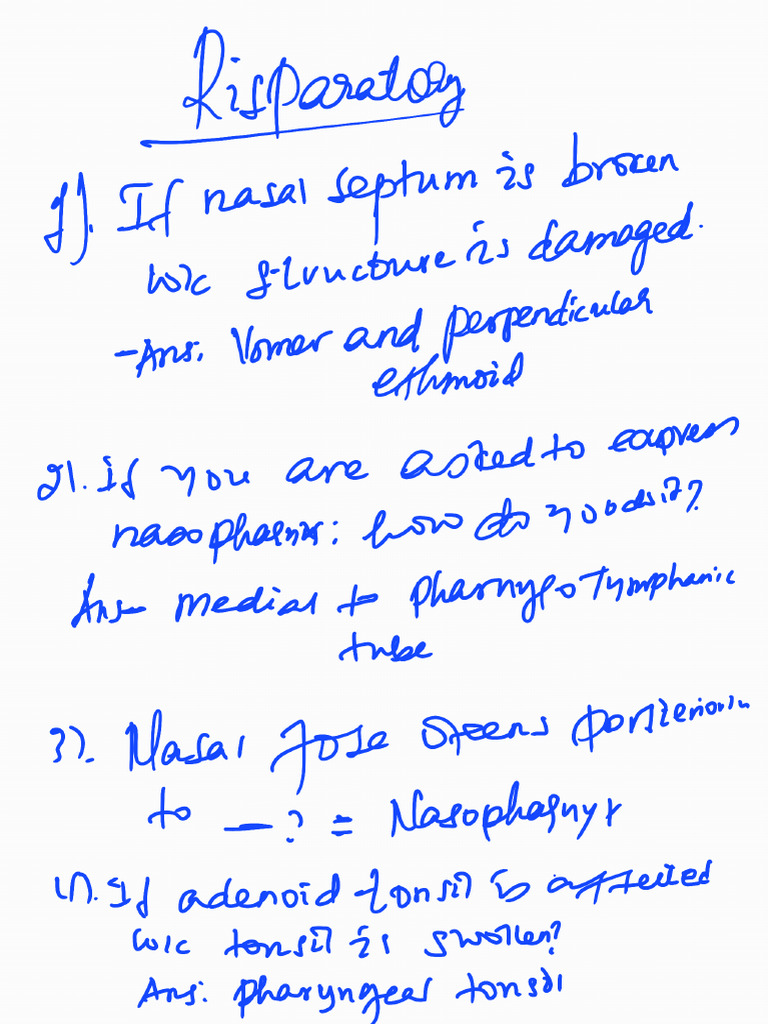 Risparatory
1). If nasal septum is broken
w/c structure is damaged.
- Ans. Vomer and perpendicular
ethmoid
2). if you are asked to express
nasopharnx: how do you do it?
Ans- medial to pharnygotymphanic
tube
3). Nasal fose opens posteriorly
to — ? = Nasopharnyx
4). If adenoid tonsil is affected
w/c tonsil is swollen?
Ans: pharyngeal tonsil